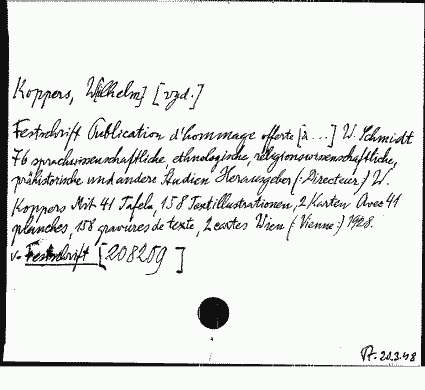 Koppers, W[ilhelm] [vyd.]
Festschrift Publication d'hommage offerte [à ...] W. Schmidt
76 sprachwissenschaftliche, ethnologische, religionswissenschaftliche,
prähistorische und andere Studien Herausgeber (: Directeur :) W.
Koppers Mit 41 Tafeln, 158 Textillustrationen, 2 Karten Avec 41
planches, 158 gravures de texte, 2 cartes Wien (: Vienne :) 1928.
v. Festschrift [208259]
20.3.48